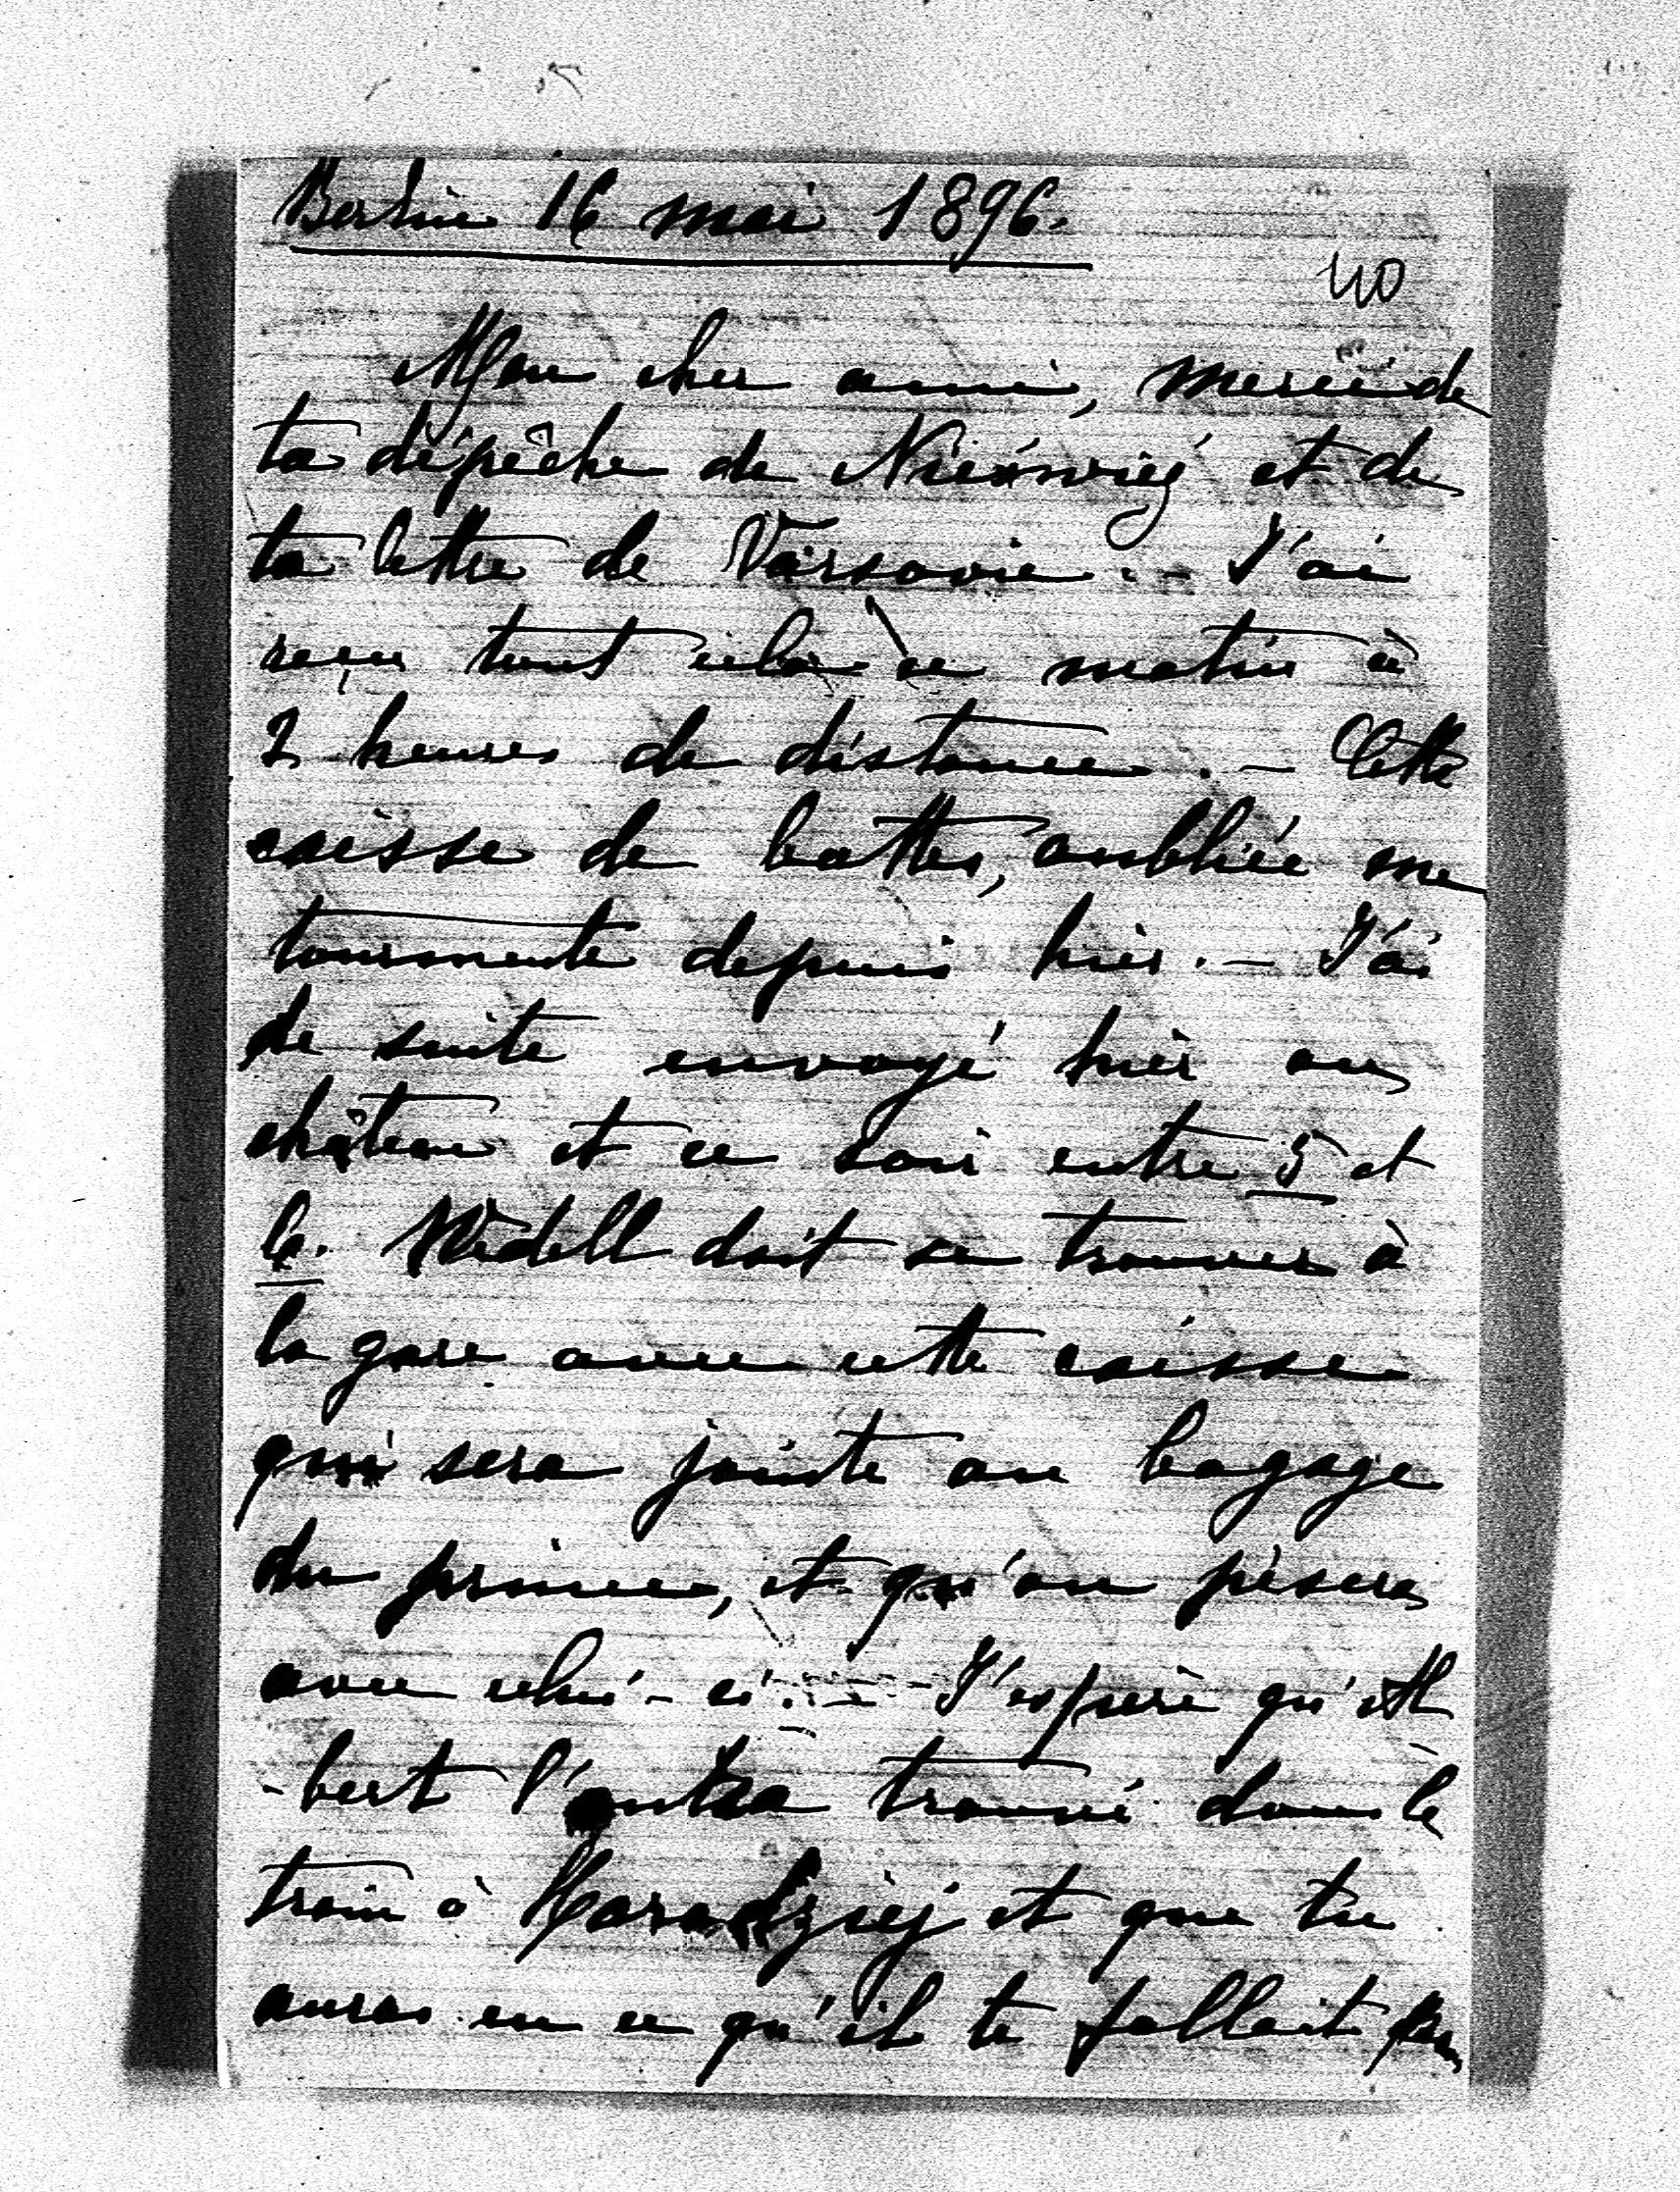 Berlin 16 mai 1896.
40
Mon cher ami, merci de
ta dépêche de Nieświeź et de
ta lettre de Varsovie. – J'ai
reçu tout cela ce matin à
2 heures de distance. – Cette
caisse de bottes, oubliée me
tourmente depuis hier. – J'ai
de suite envoyé hier au
château et ce soir entre 5 et
6. Wedell doit se trouver à
la gare avec cette caisse
qui sera jointe au bagage
du prince, et qu'on pèsera
avec celui-ci. – J'espère qu'Al
-bert l'aura trouvé dans le
train à Horodziej et que tu
auras eu ce qu'il te fallait